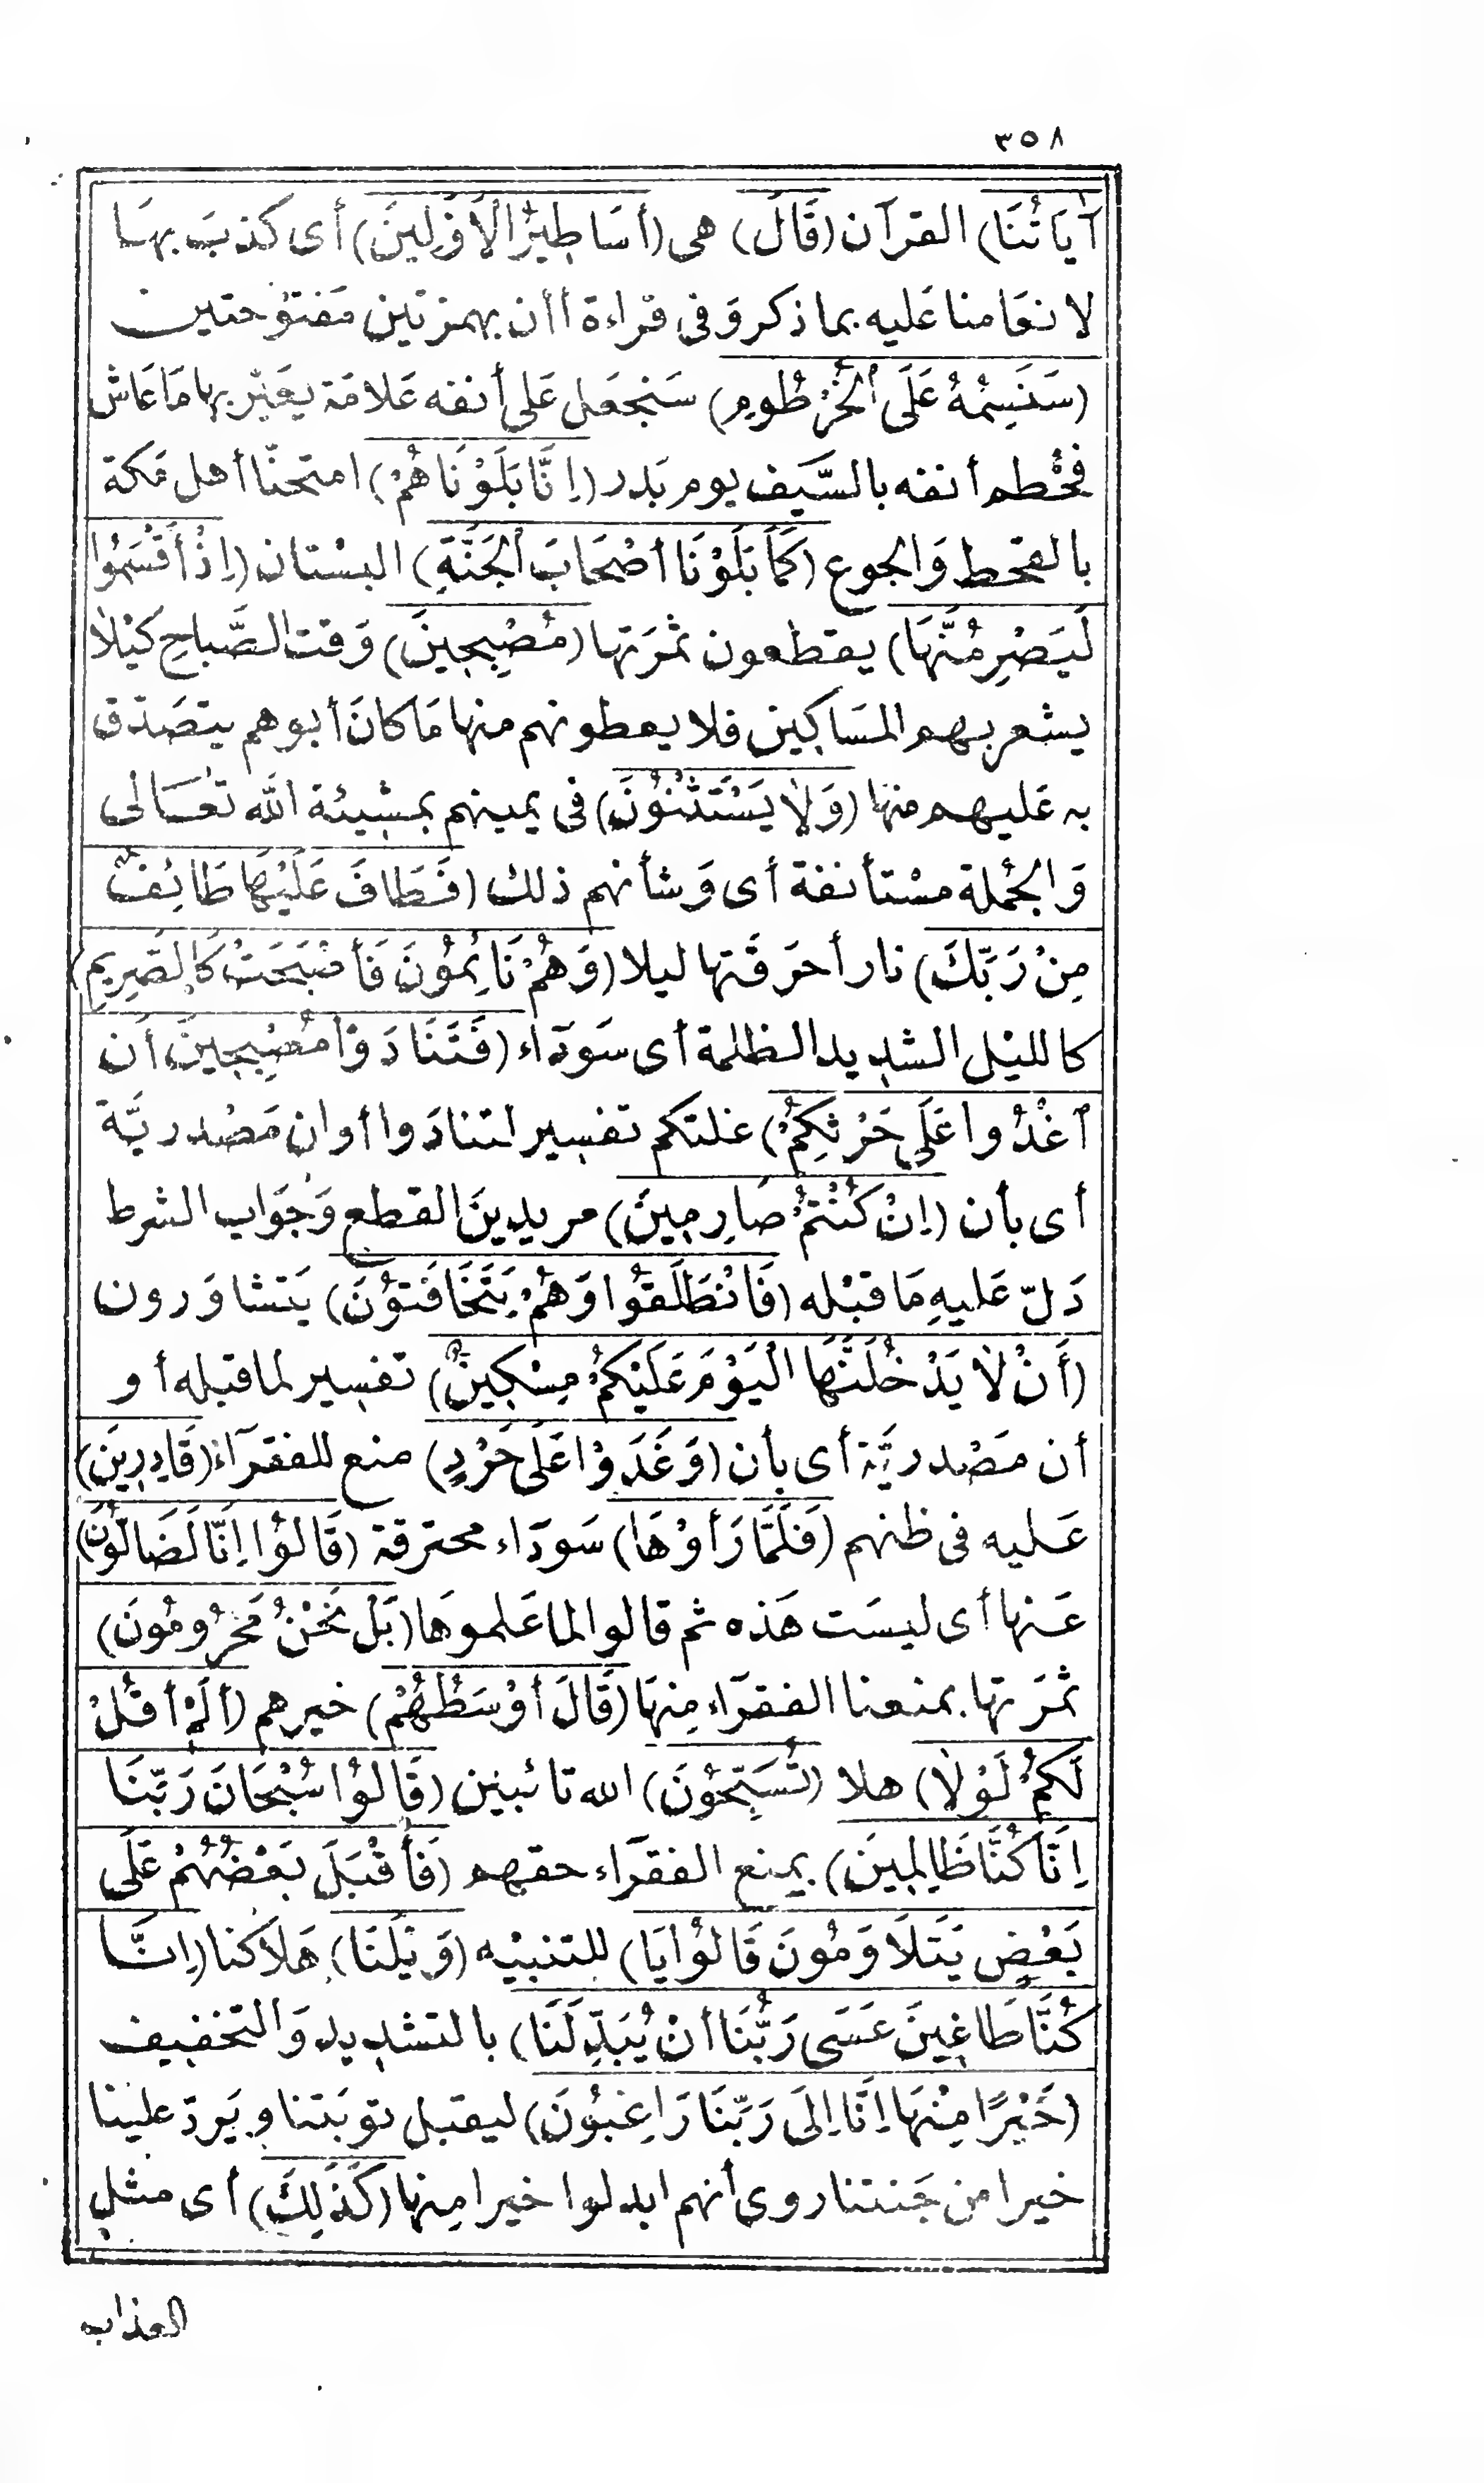 ٣٥٨
آيَاتُنَا) القرآن (قَالَ) هى (أَسَاطِيرُ الْأَوَّلِينَ) أى كذبَ بهَا
لانعَامنا عَليه بما ذكر وَفى قراءة أأن بهمزتين مَفتوُحتين
(سَنَسِمُهُ عَلَى ٱلْخُرْطُومِ) سَنجعَل عَلى أنفه عَلامَة يعَيّر بها مَا عَاش
فخُطم أنفه بالسَّيف يوم بَدر (إِنَّا بَلَوْنَاهُمْ) امتحنّا أهل مَكة
بالقحط وَالجوع (كَمَا بَلَوْنَا أَصْحَابَ ٱلْجَنَّةِ) البسْتان (إِذْ أَقْسَمُوا
لَيَصْرِمُنَّهَا) يقطعون ثمَرَتها (مُصْبِحِينَ) وَقت الصَّباحِ كيْلا
يشعر بهم المسَاكِين فلا يعطونهم منها مَا كانَ أبوهم يتصَدّق
به عَليهم منهَا (وَلَا يَسْتَثْنُونَ) فى يمينهم بمشِيئة الله تعَالى
وَالجُملة مسْتأنفة أى وَشأنهم ذلك (فَطَافَ عَلَيْهَا طَائِفٌ
مِنْ رَبِّكَ) نار أحرَقَتها ليلا (وَهُمْ نَائِمُونَ فَأَصْبَحَتْ كَالصَّرِيمِ)
كالليْل الشدِيد الظلمة أى سَودَآء (فَتَنَادَوْا مُصْبِحِينَ أَن
ٱغْدُوا عَلَى حَرْثِكُمْ) غلتكم تفسِير لتنادَوا أوان مَصْدريَّة
أى بأن (إِنْ كُنْتُمْ صَارِمِينَ) مريدِينَ القطع وَجَوَاب الشرط
دَلّ عَليهِ مَا قبْله (فَانْطَلَقُوا وَهُمْ يَتَخَافَتُونَ) يَتشاوَرون
(أَنْ لَا يَدْخُلَنَّهَا الْيَوْمَ عَلَيْكُمْ مِسْكِينٌ) تفسِير لما قبله أو
أن مَصْدريَّة أى بأن (وَغَدَوْا عَلَى حَرْدٍ) منع للفقرَآء (قَادِرِينَ)
عَليه فى ظنهم (فَلَمَّا رَأَوْهَا) سَودَآء محترقة (قَالُوا إِنَّا لَضَالُّونَ)
عَنها أى ليسَت هَذه ثم قالوا لما عَلموهَا (بَلْ نَحْنُ مَحْرُومُونَ)
ثمَرَتها بمنعنا الفقرَآء مِنهَا (قَالَ أَوْسَطُهُمْ) خيرهم (أَلَمْ أَقُلْ
لَكُمْ لَوْلَا) هلا (تُسَبِّحُونَ) الله تائبين (قَالُوا سُبْحَانَ رَبِّنَا
إِنَّا كُنَّا ظَالِمِينَ) بمنع الفقرَآء حقهم (فَأَقْبَلَ بَعْضُهُمْ عَلَى
بَعْضٍ يَتَلَاوَمُونَ قَالُوا يَا) للتنبيْه (وَيْلَنَا) هَلاكنا (إِنَّا
كُنَّا طَاغِينَ عَسَى رَبُّنَا أَنْ يُبَدِّلَنَا) بالتشدِيد وَالتخفيف
(خَيْرًا مِنْهَا إِنَّا إِلَى رَبِّنَا رَاغِبُونَ) ليقبل توبَتنا ويَردّ علينا
خيرا من جَنتنا روى أنهم ابدلوا خيرا مِنها (كَذَلِكَ) أى مثل
العذاب